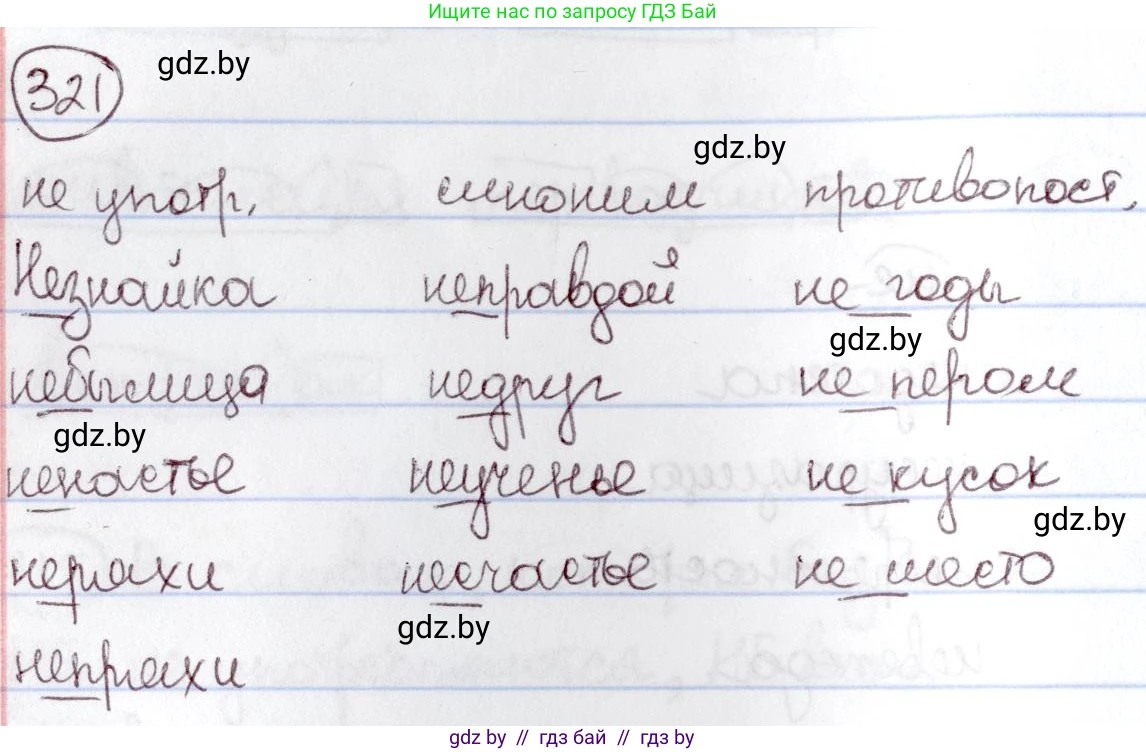 Ищите нас по запросу ГДЗ Бай
321 gdz.by
gdz.by
не употр. синоним противопост.
Незнайка неправдой не годы
gdz.by
небылица недруг не пером
gdz.by
ненастье неученье не кусок
gdz.by
неряхи несчастье не место
gdz.by
непряхи
gdz.by // гдз бай // gdz by